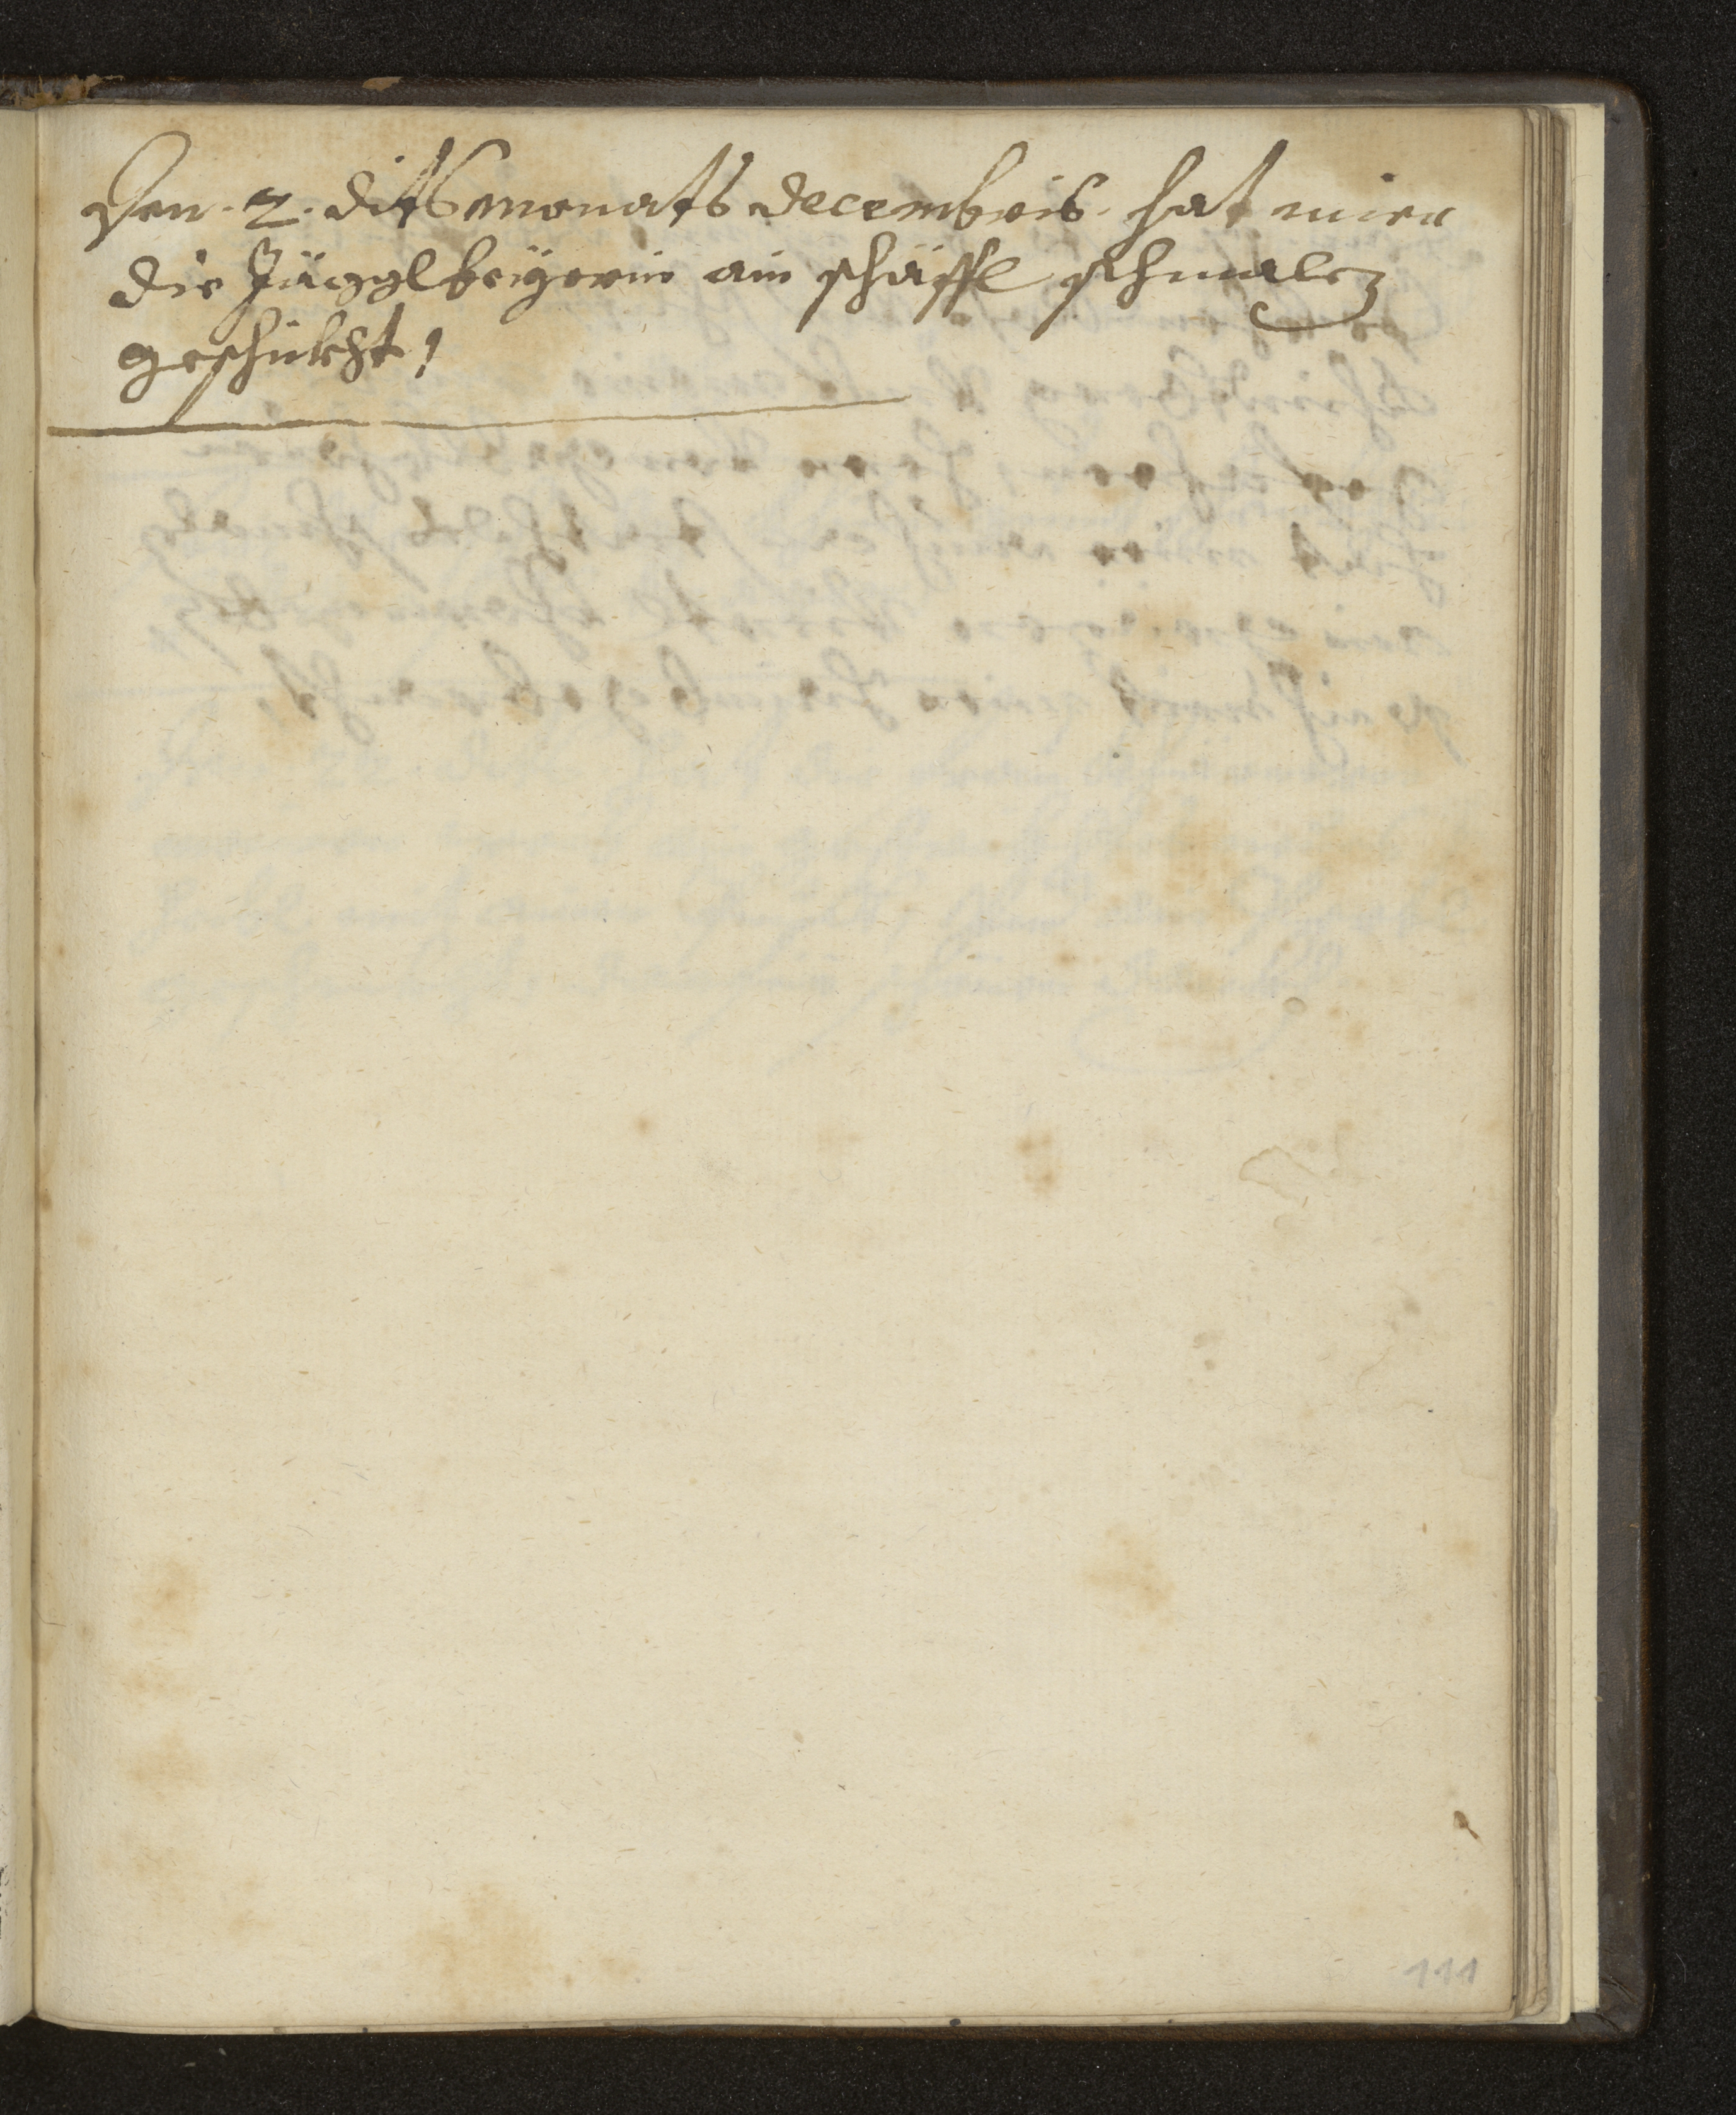 Den. 2. dits monats decembris. hat mier
die Jägglbreÿerin ain schäffl schmalcz
geschükht /
111